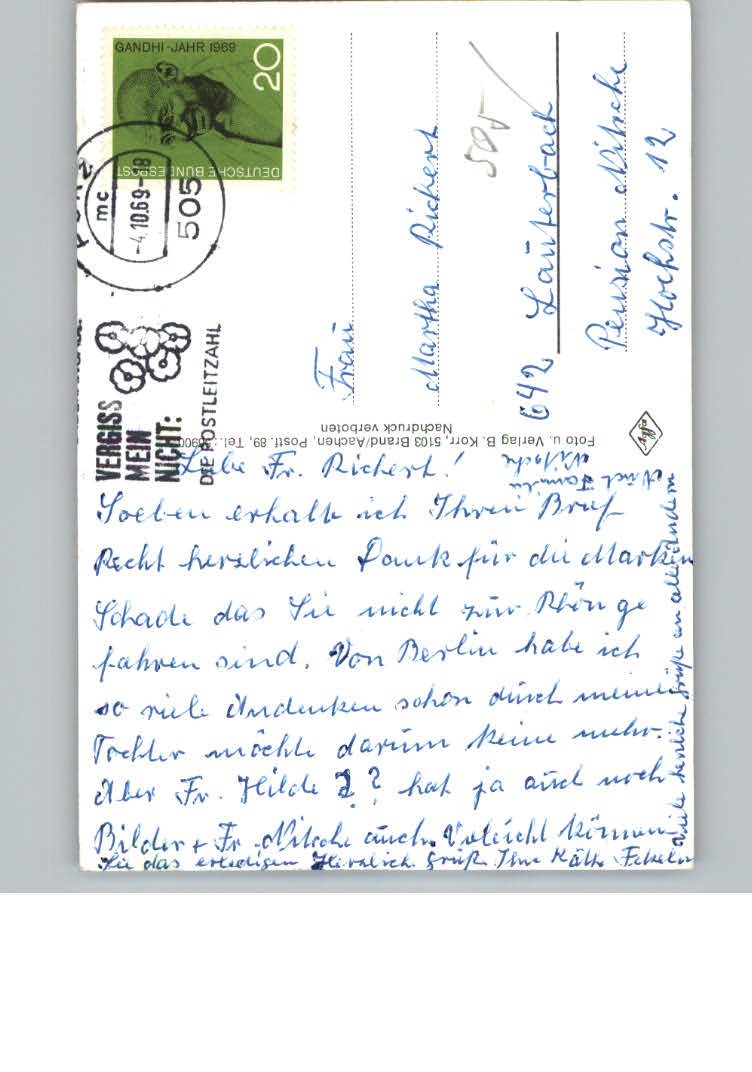 GANDHI-JAHR 1969
20
DEUTSCHE BUNDESPOST
PORZ
mc
-4.10.69-18
505
VERGISS
MEIN
NICHT:
DIE POSTLEITZAHL
505
Frau
Martha Richert
642 Lauterbach
Pension Nitsche
Hochstr. 12
Foto u. Verlag B. Korr, 5103 Brand/Aachen, Postf. 89, Tel.:
Nachdruck verboten
Agfa
Liebe Fr. Richert!
Soeben erhalte ich Ihren Brief
Recht herzlichen Dank für die Marken
Schade das Sie nicht zur Rhön ge
fahren sind. Von Berlin habe ich
so viele Andenken schon durch meine
Tochter möchte darum keine mehr.
Aber Fr. Hilde J? hat ja auch noch
Bilder + Fr. Nitsche auch. Veleicht können
Sie das erledigen Herzlich grüßt Ihre Käthe
Viele herzliche Grüße an alle andern
Auch Familie
Nitsche